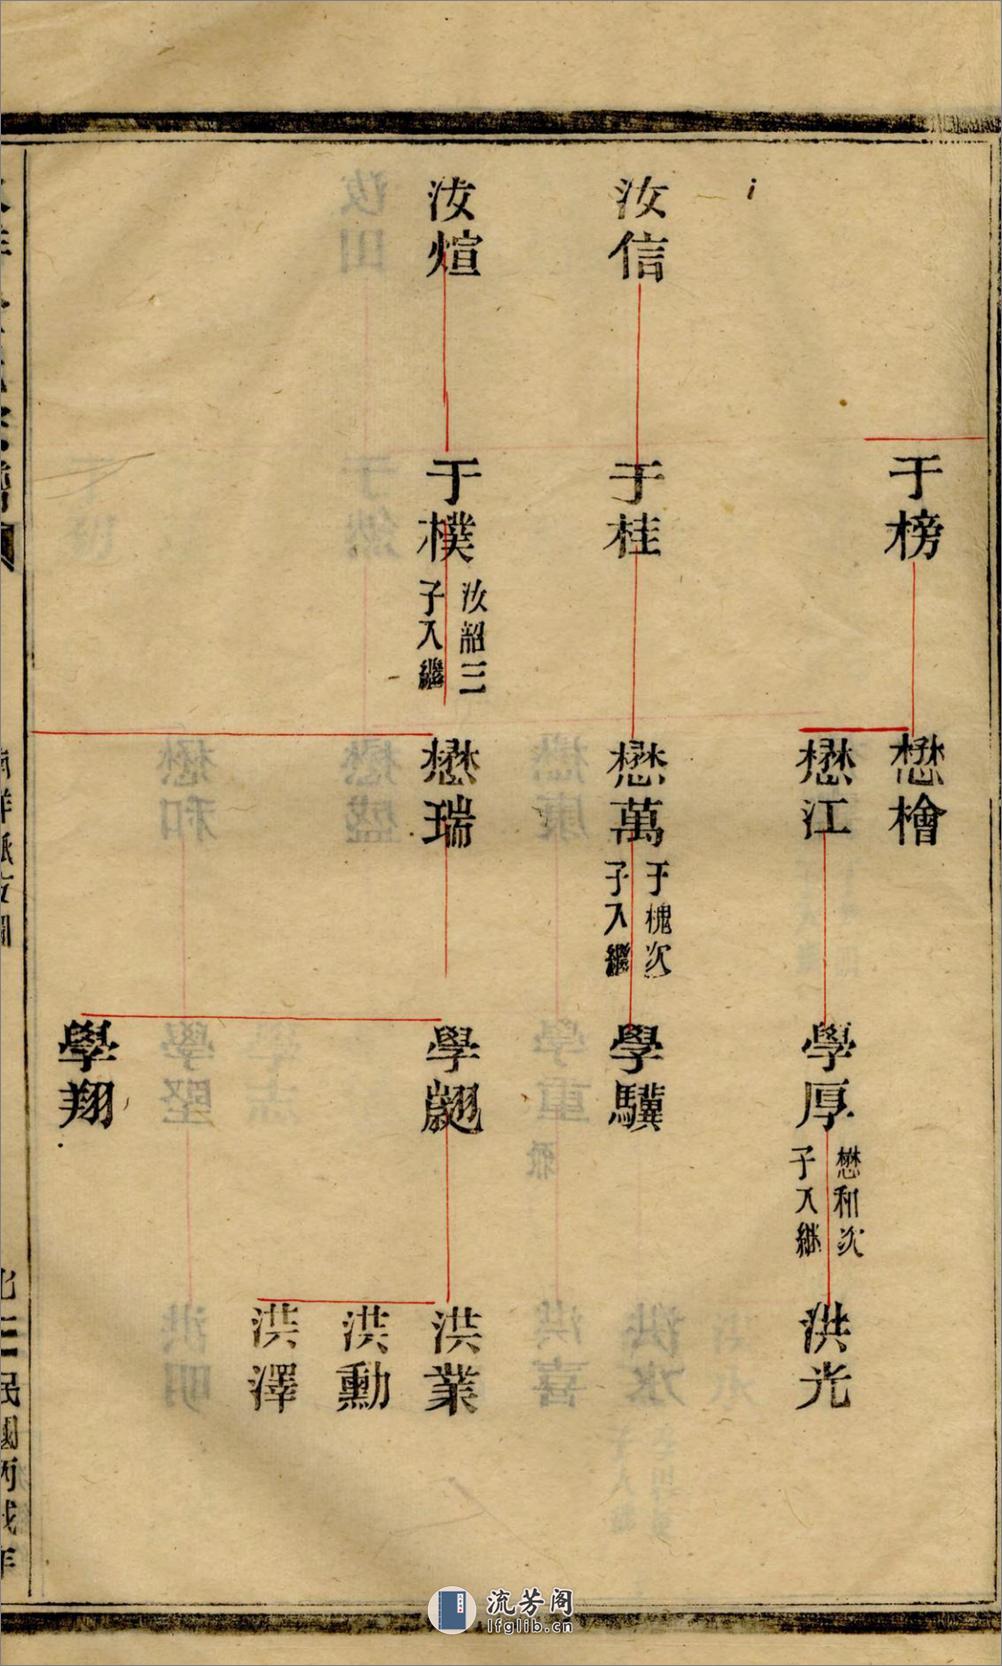 汝信
汝煊
于榜
于桂
于樸
汝韶三
子入繼
懋檜
懋江
懋萬
于槐次
子入繼
懋瑞
學厚
懋和次
子入継
學驥
學翹
學翔
洪光
洪業
洪勳
洪澤
民國丙戌年
流芳阁
lfglib.cn